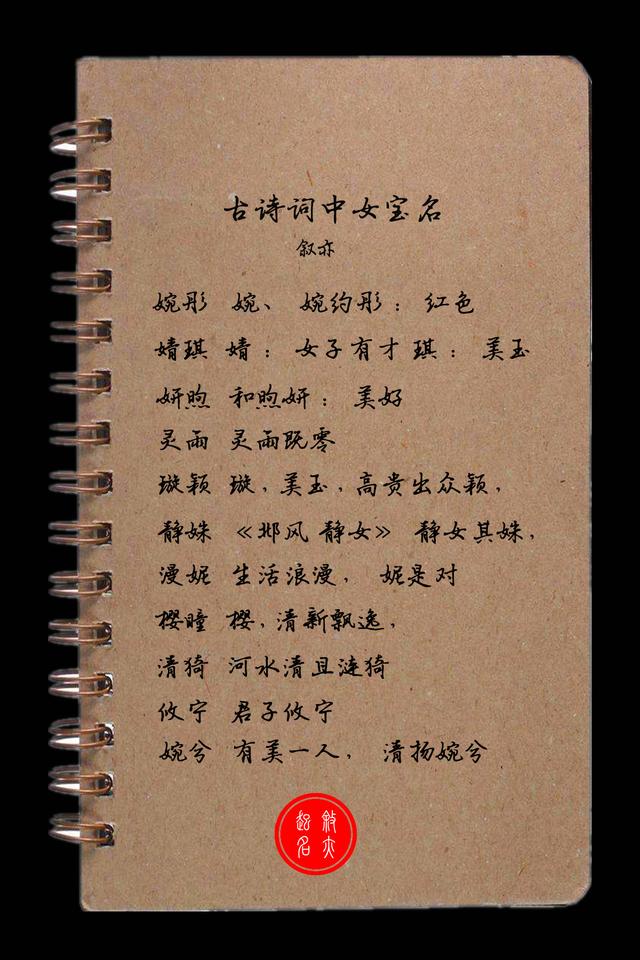 古诗词中女宝名
叙亦
婉彤 婉、 婉约彤：红色
婧琪 婧：女子有才琪：美玉
妍煦 和煦妍：美好
灵雨 灵雨既零
璇颖 璇，美玉，高贵出众颖，
静姝 《邶风 静女》 静女其姝，
漫妮 生活浪漫， 妮是对
樱瞳 樱，清新飘逸，
清猗 河水清且涟猗
攸宁 君子攸宁
婉兮 有美一人， 清扬婉兮
叙亦
起名